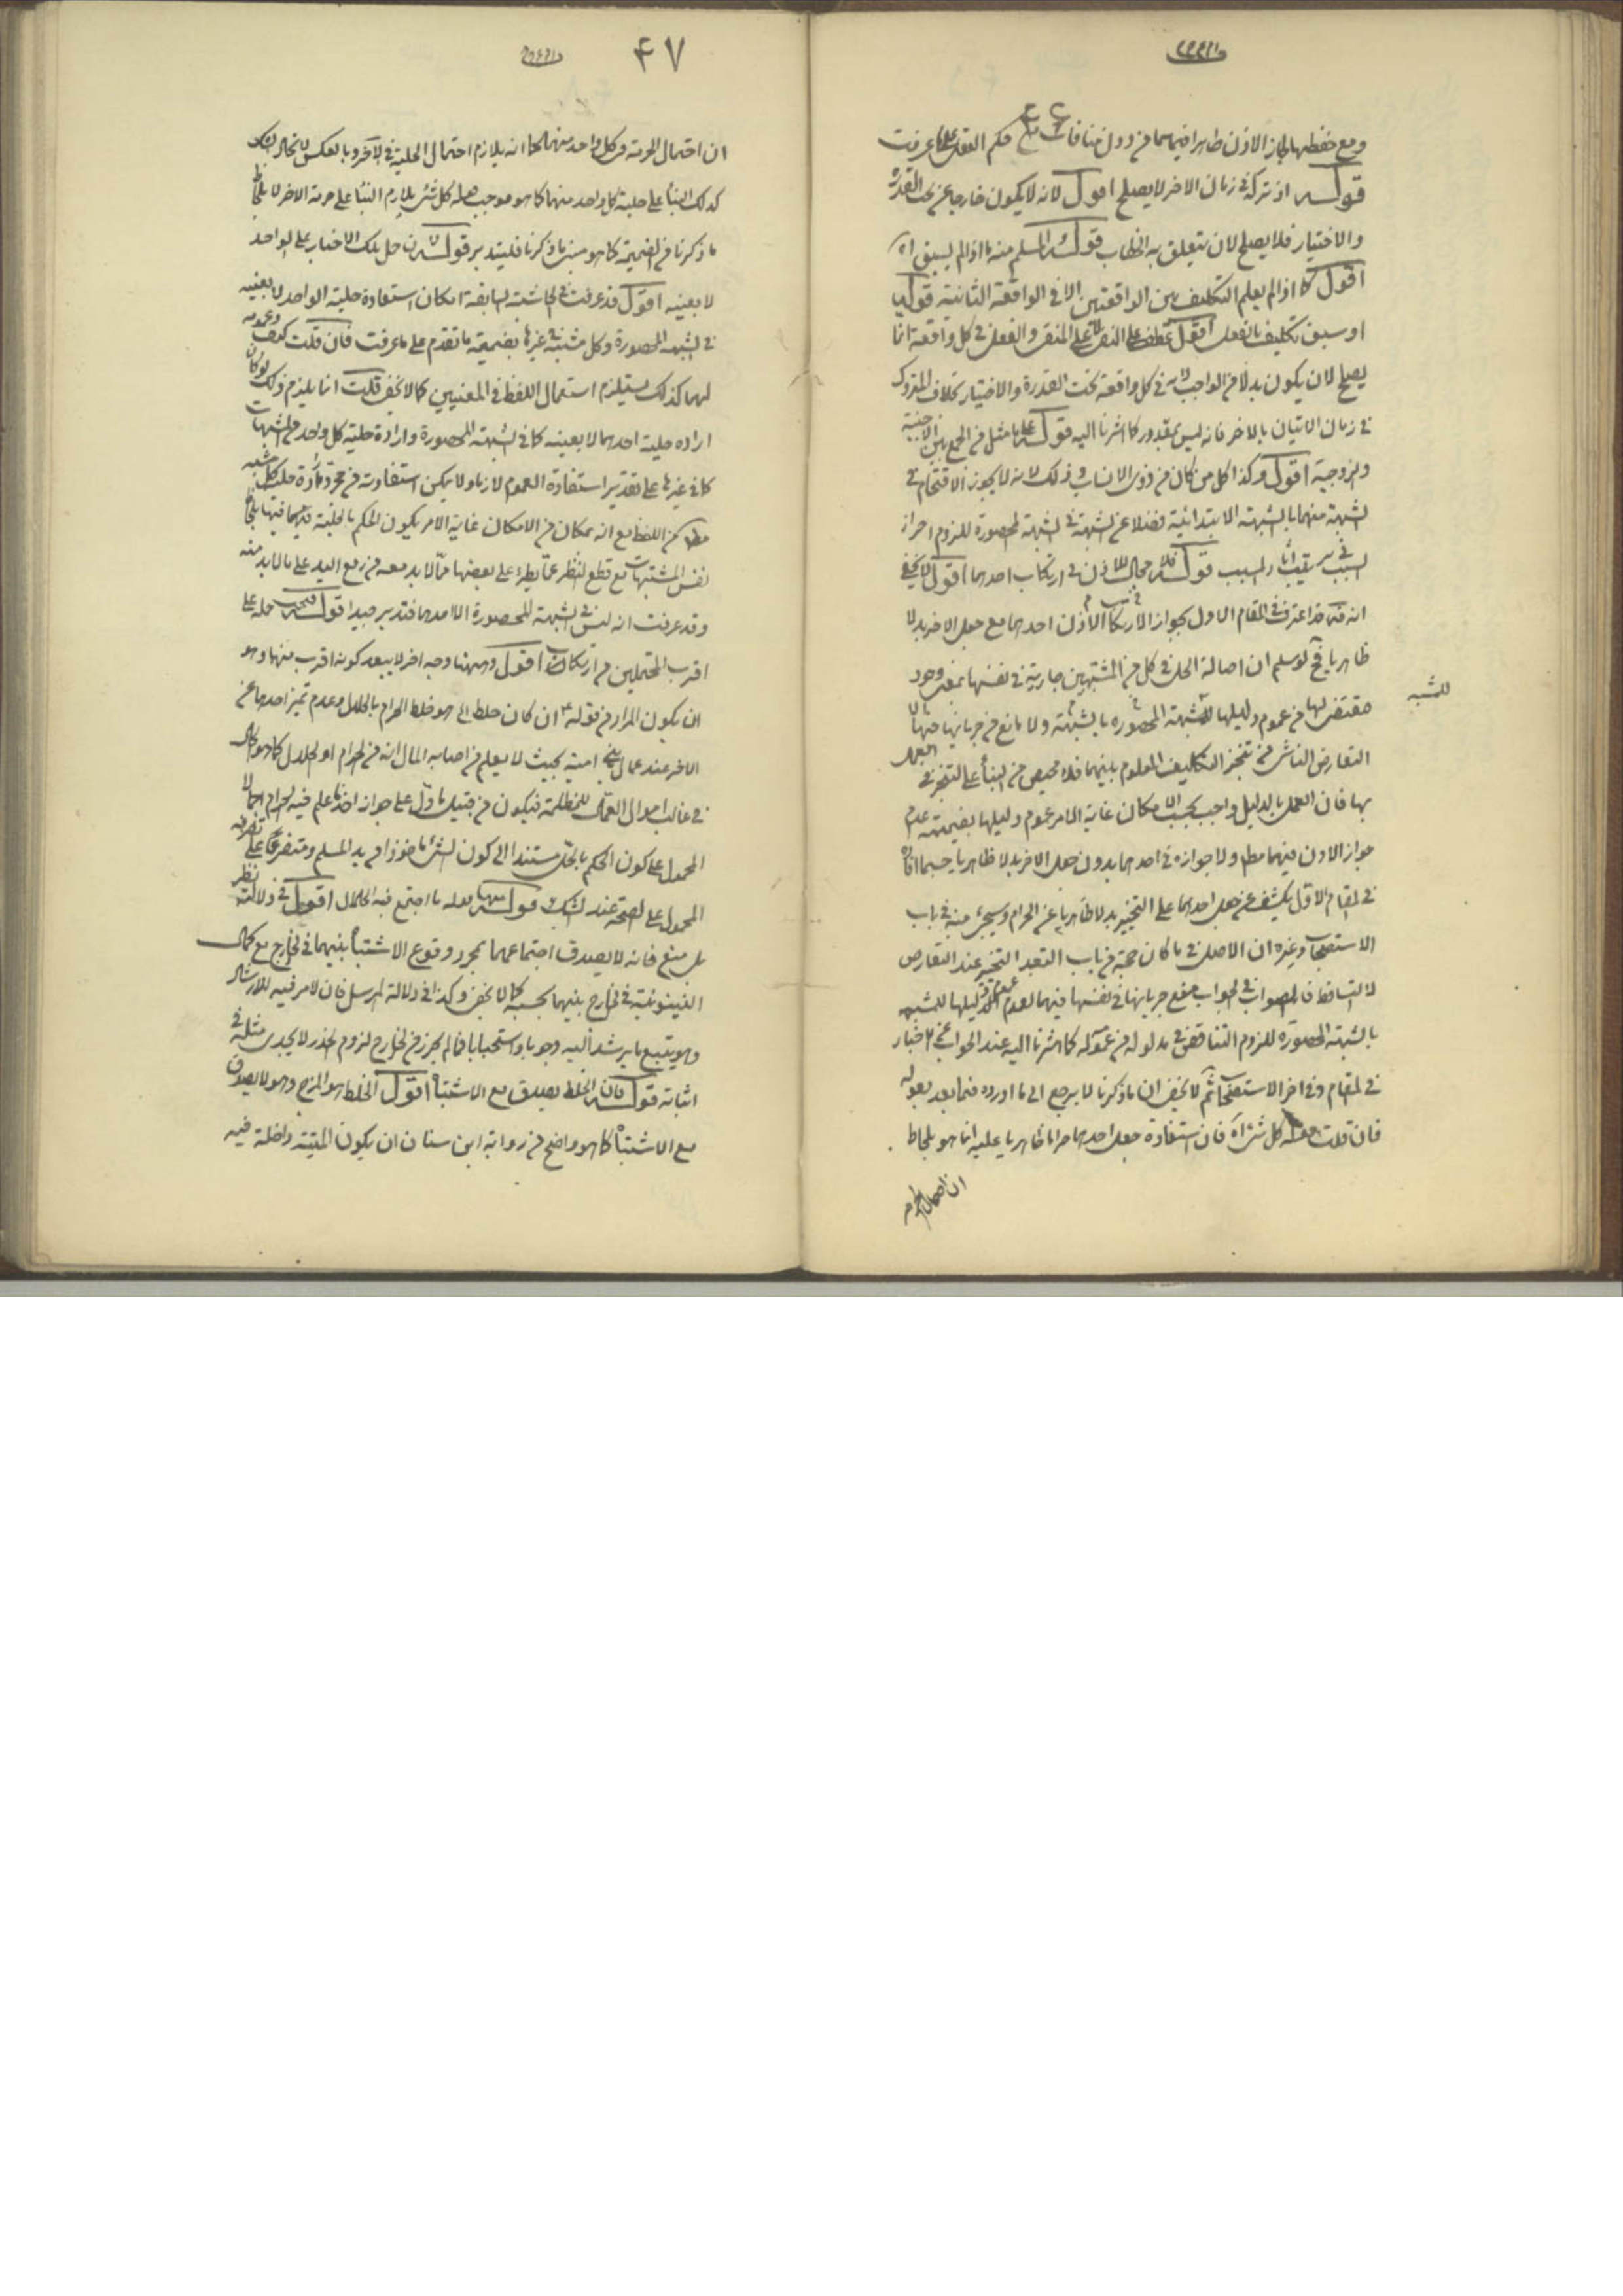 ومع حفظهما لجاز الاذن ظاهرا فيهما من دون منافات مع حكم العقل على ما عرفت
قوله اذ تركه فى زمان الاخر لا يصلح اقول لانه لا يكون خارجا عن تحت القدرة
والاختيار فلا يصلح لان يتعلق به الخطاب قوله المسلم منه ما اذا لم يسبق اه
اقول كما اذا لم يعلم التكليف بين الواقعتين الا فى الواقعة الثانية قوله
او سبق تكليف بالفعل اقول عطف على النفى لا على المنفى والفعل فى كل واقعة انما
يصلح لان يكون بدلا من الواجب لانه فى كل واقعة تحت القدرة والاختيار بخلاف المتروك
فى زمان الاتيان بالاخر فانه ليس بمقدور كما اشرنا اليه قوله على ما مثل من الجمع بين الاجنبية
والزوجية اقول وكذا كل من كان من ذوى الانساب وذلك لانه لا يجوز الاقتحام فى
الشبهة منهما بالشبهة الابتدائية فضلا عن الشبهة فى الشبهة المحصورة للزوم احراز
السبب فى ترتيب اثار المسبب قوله فلا مجال للاذن فى ارتكاب احدهما اقول لا يخفى
انه قده قد اعترف فى المقام الاول بجواز الاذن فى ارتكاب احدهما مع جعل الاخر بدلا
ظاهريا فح لو سلم ان اصالة الحل فى كل من المشتبهين جارية فى نفسها بمعنى وجود
للشبهة
مقتضى لها من عموم دليلها للشبهة المحصورة بالشبهة ولا مانع من جريانها فيهما الا
التعارض الناشى من تنجز التكليف المعلوم بينهما فلا محيص من البناء على التخيير فى العمل
بها فان العمل بالدليل واجب بحسب الامكان غاية الامر عموم دليلها بضميمة عدم
جواز الاذن فيهما مطلقا ولا جوازه فى احدهما بدون جعل الاخر بدلا ظاهريا حسبما افاده
فى المقام الاول يكشف عن جعل احدهما على التخيير بدلا ظاهريا عن الحرام وسيجئ منه فى باب
الاستصحاب وغيره ان الاصل فى ما كان حجة من باب التعبد التخيير عند التعارض
لا التساقط فالصواب فى الجواب منع جريانها فى نفسها فيهما لعدم عموم دليلها للشبهة
بالشبهة المحصورة للزوم التناقض فى مدلوله من عمومه كما اشرنا اليه عند الجواب عن الاخبار
فى المقام وفى اخر الاستصحاب ثم لا يخفى ان ما ذكرنا لا يرجع الى ما اورده فيما بعد بقوله
فان قلت قوله كل شئ اه فان استفادة جعل احدهما حراما ظاهريا عليه انما هو بلحاظ
ان احتمال الحرمة
٤٧
ان احتمال الحرمة فى كل واحد منهما كما انه يلازم احتمال الحلية فى الاخر وبالعكس لا محالة كك
كذلك البناء على حلية كل واحد منهما كما هو موجب قوله كل شئ يلازم البناء على حرمة الاخر لا بلحاظ
ما ذكرنا من الضميمة كما هو مبنى ما ذكرنا فليتدبر قوله لان حل تلك الاخبار على الواحد
لا بعينه اقول قد عرفت فى الحاشية السابقة امكان استفادة حلية الواحد لا بعينه
فى الشبهة المحصورة وكل مشتبه فى غيرها بضميمة ما تقدم على ما عرفت فان قلت كيف وعمومه
لهما كذلك يستلزم استعمال اللفظ فى المعنيين كما لا يخفى قلت انما يلزم ذلك لو كان
اراده حلية احدهما لا بعينه كما فى الشبهة المحصورة وارادة حلية كل واحد من المشتبهات
كما فى غيرها على تقدير استفادة العموم لازما ولا يمكن استفادته من مجرد ارادة حلية كل مشتبه
مطلقا من اللفظ مع انه بمكان من الامكان غاية الامر يكون الحكم بالحلية فيهما فيها بلحاظ
نفس المشتبهات مع قطع النظر عما يطرء على بعضها مما لا بد معه من رفع اليد على ما لا بد منه
وقد عرفت انه ليس فى الشبهة المحصورة الا احدهما فتدبر جيدا قوله فيحمل حمله على
اقرب المحتملين من ارتكاب اقول وههنا وجه اخر لا يبعد كونه اقرب منهما وهو
ان يكون المراد من قوله ع ان كان خلط الى هو خلط الحرام بالحلال وعدم تميز احدهما عن
الاخر عند عمال بنى امية بحيث لا يعلم من اصابه المال انه من الحرام او الحلال كما هو الحال
فى غالب اموال العمال للظلمة فيكون من قبيل ما دل على جواز اخذ ما علم فيه الحرام اجمالا
المحمول على كون الحكم بالحل مستندا الى كون الشئ ماخوذا من يد المسلم ومتفرعا على تصرفه
المحمول على الصحة عند الشك قوله منها قوله ما اجتمع فيه الحلال اقول فى دلالته نظر
بل منع فانه لا يصدق اجتماعهما بمجرد وقوع الاشتباه بينهما فى الخارج مع كمال
البينونية فى الخارج بينهما بحسبه كما لا يخفى وكذا فى دلالة المرسل فان الامر فيه للارشاد
وهو يتبع ما يرشد اليه وجوبا واستحبابا فما لم يحرز من الخارج لزوم الحذر لا يجدى مثله فى
اثباته قوله فان الخلط يصدق مع الاشتباه اقول الخلط هو المزج وهو لا يصدق
مع الاشتباه كما هو واضح من رواية ابن سنان ان يكون الميتة داخلة فيه